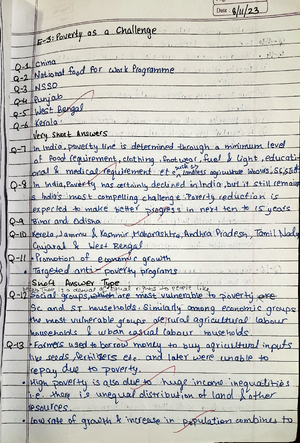 Date: 8/11/23
E-3: Poverty as a Challenge
Q-1 China
Q-2 National food for work Programme
Q-3 NSSO
Q-4 Punjab
Q-5 West Bengal
Q-6 Kerala
Very Short Answers
Q-7 In India, poverty line is determined through a minimum level
of food requirement, clothing, footwear, fuel & light, educati-
onal & medical requirement etc.
Q-8 In India, Poverty has certainly declined in India, but it still remains
India's most compelling challenge. Poverty reduction is
expected to make better progress in next ten to 15 years
Q-9 Bihar and Odisha
Q-10 Kerela, Jammu & Kashmir, Maharashtra, Andhra Pradesh, Tamil Nadu,
Gujarat & West Bengal
Q-11 • Promotion of economic growth
• Targeted anti-poverty programs
Short Answer Type
Q-12 Social groups, which are most vulnerable to poverty are
SC and ST households. Similarly among economic groups
the most vulnerable groups are rural agricultural labour
households & urban casual labour households
Q-13 • Farmers used to borrow money to buy agricultural inputs
like seeds, fertilizers etc. and later were unable to
repay due to poverty.
• High poverty is also due to huge income inequalities
i.e. there is unequal distribution of land & other
resources.
• Low rate of growth & increase in population combines to